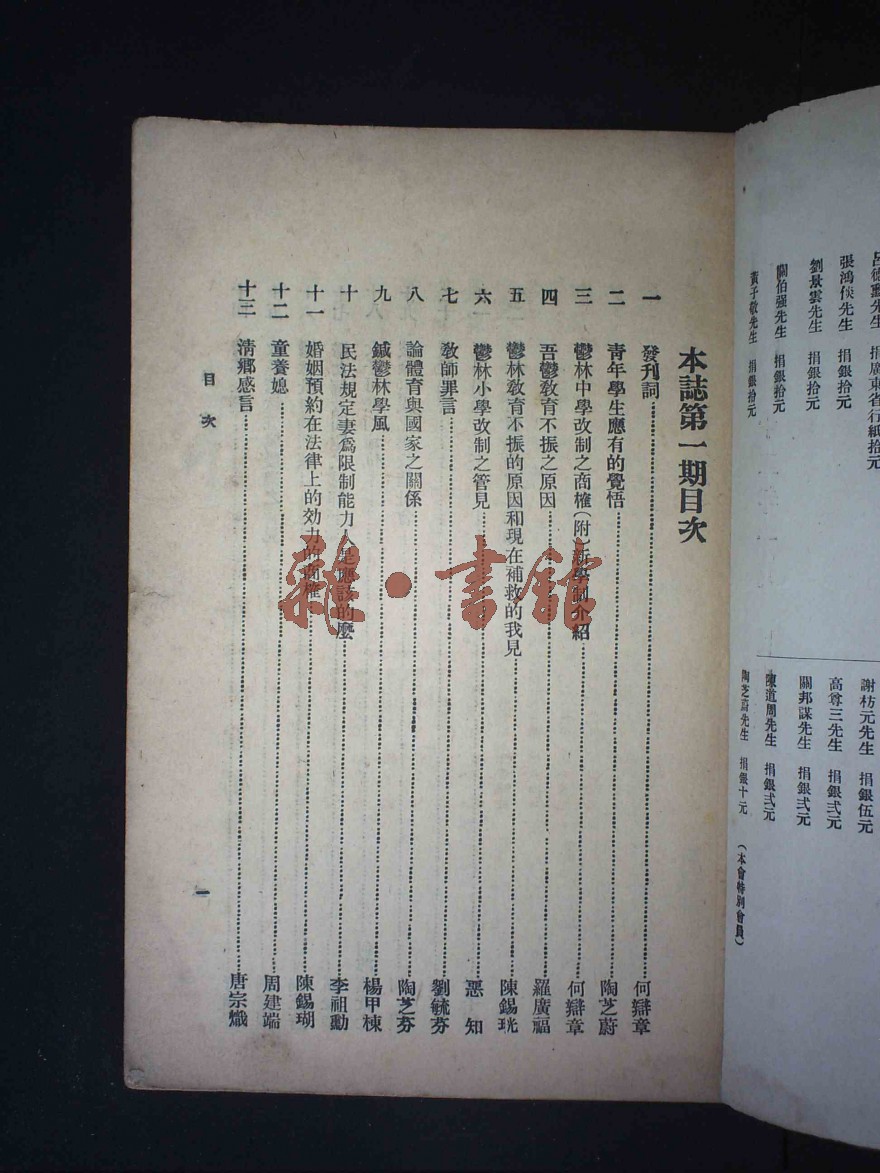 呂德□先生　捐廣東省行紙拾元
張鴻俟先生　捐銀拾元
劉景雲先生　捐銀拾元
關伯强先生　捐銀拾元
黃子敬先生　捐銀拾元
謝枋元先生　捐銀伍元
高尊三先生　捐銀弍元
關邦謀先生　捐銀弍元
陳道周先生　捐銀弍元
陶芝蔚先生　捐銀十元　（本會特別會員）
本誌第一期目次
一　發刊詞……何辯章
二　靑年學生應有的覺悟……陶芝蔚
三　鬱林中學改制之商榷(附)新學制介紹……何辯章
四　吾鬱敎育不振之原因……羅廣福
五　鬱林敎育不振的原因和現在補救的我見……陳錫珖
六　鬱林小學改制之管見……惡知
七　敎師罪言……劉毓芬
八　論體育與國家之關係……陶芝芬
九　鍼鬱林學風……楊甲棟
十　民法規定妻爲限制能力人是應該的麼……李祖勳
十一　婚姻預約在法律上的効力的商榷……陳錫瑚
十二　童養媳……周建端
十三　淸鄉感言……唐宗熾
目次
一
雜·書館